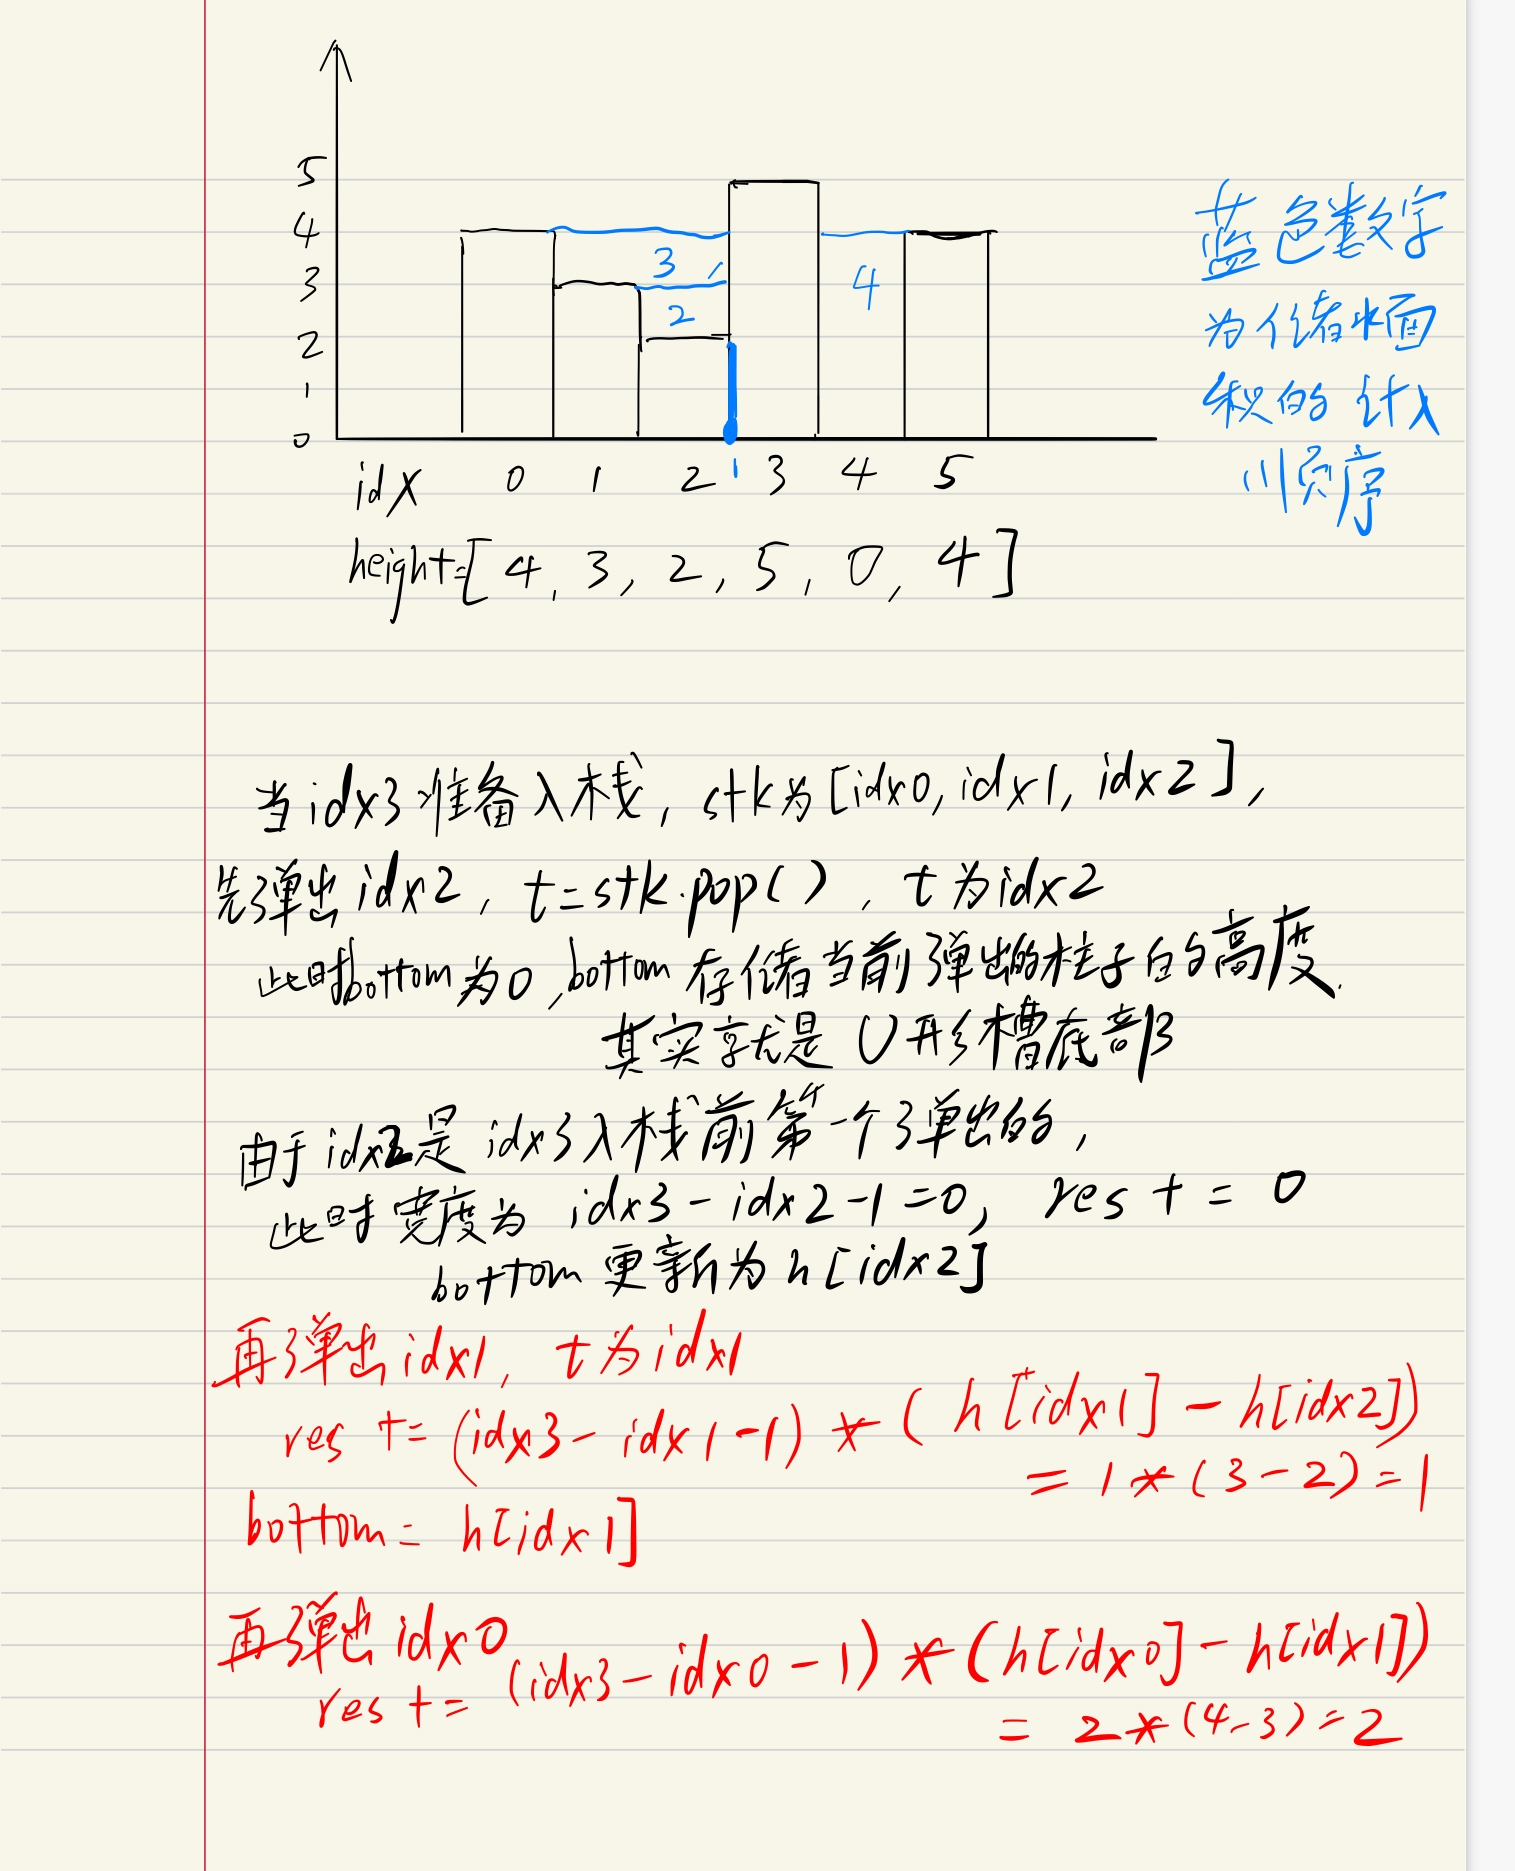 5
4
3
2
1
0
3
2
4
idx 0 1 2 1 3 4 5
height=[4, 3, 2, 5, 0, 4]
蓝色数字
为储水面
积的计入
顺序
当idx3准备入栈, stk为[idx0, idx1, idx2],
先弹出idx2, t=stk.pop(), t为idx2
此时bottom为0, bottom存储当前弹出的柱子的高度.
其实就是U形槽底部
由于idx2是idx3入栈前第一个弹出的,
此时宽度为 idx3-idx2-1=0, res+=0
bottom更新为h[idx2]
再弹出idx1, t为idx1
res += (idx3-idx1-1)*(h[idx1]-h[idx2])
=1*(3-2)=1
bottom=h[idx1]
再弹出idx0
res+= (idx3-idx0-1)*(h[idx0]-h[idx1])
=2*(4-3)=2